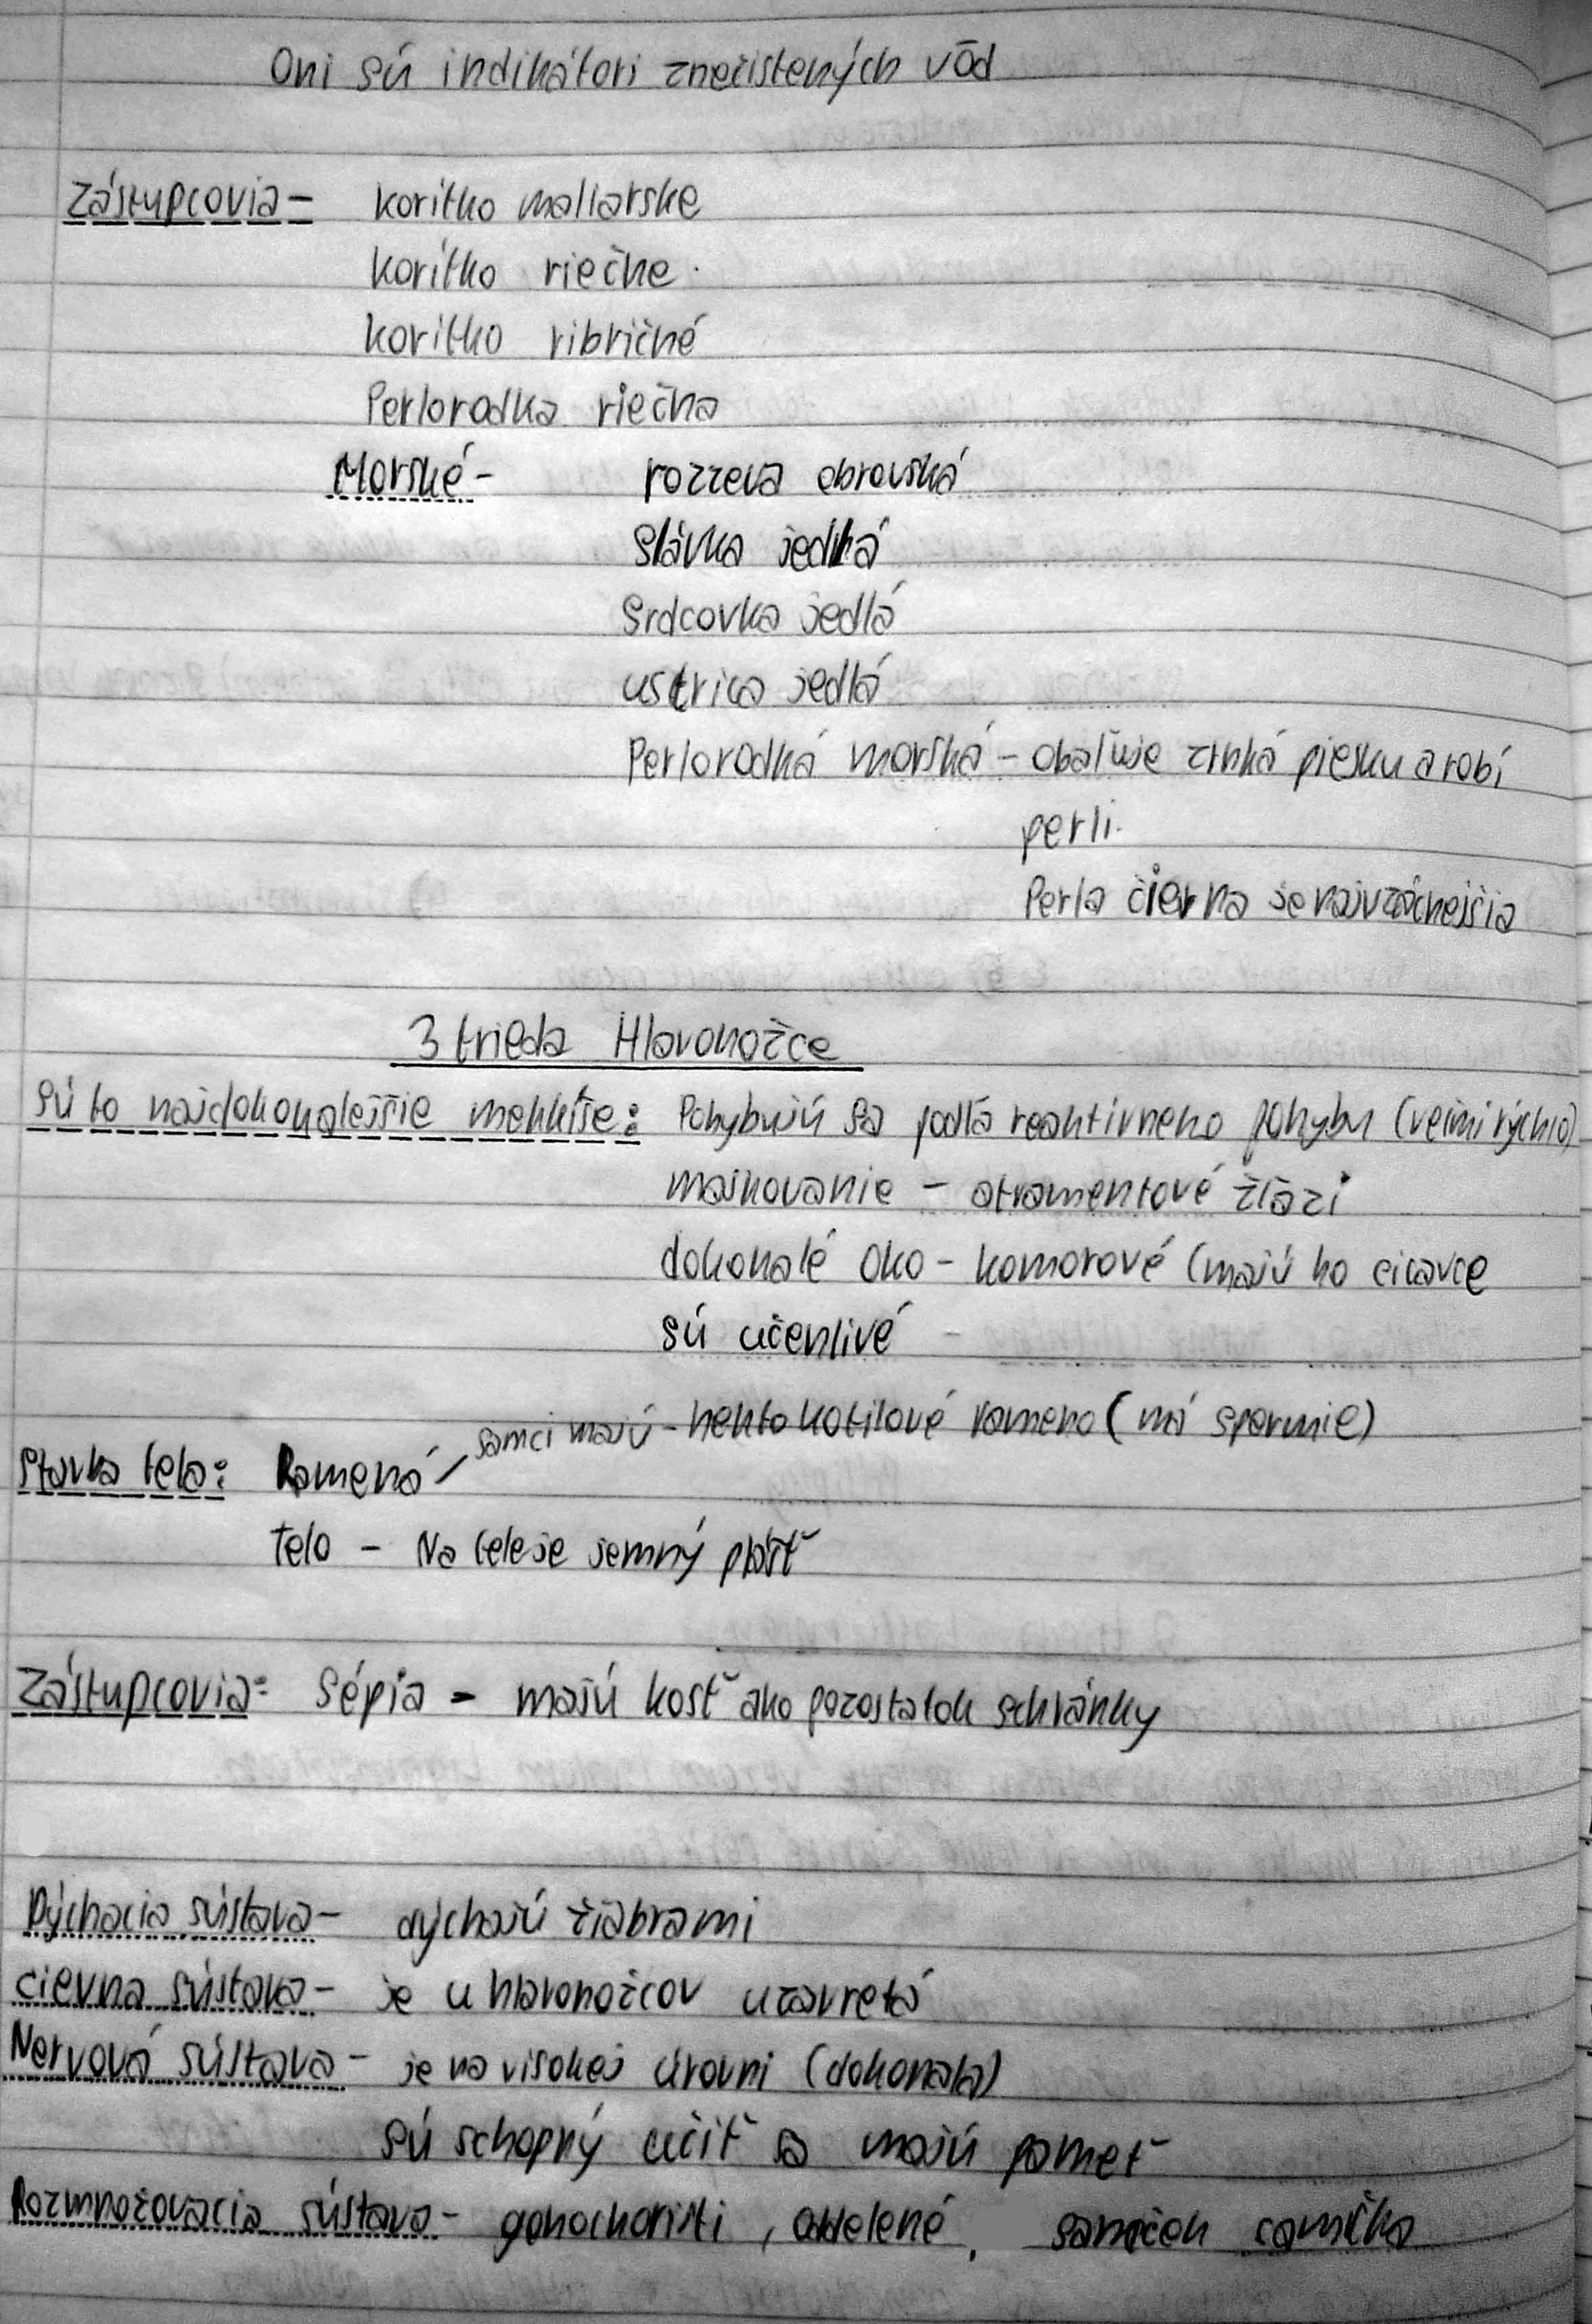 Oni sú indikátori znečistených vōd
Zástupcovia - korítko maliarske
korítko riečne
korítko ribričné
Perlorodka riečna
Morské - rozzeva obrovská
Slávka jedlá
Srdcovka jedlá
ustrica jedlá
Perlorodká morská - obaľuje zrnká piesku a robí
perli.
Perla čierna je najvzácnejšia
3 trieda Hlavonožce
sú to najdokonalejšie mekkíše: Pohybujú sa podľa reaktívneho pohybu (veľmi rýchlo)
maskovanie - atramentové žľazi
dokonalé oko - komorové (majú ho cicavce
sú učenlivé -
samci majú - hektokotilové rameno (má spermie)
Stavba tela: Ramená -
telo - Na tele je jemný plášť
Zástupcovia: Sépia - majú kosť ako pozostatok schránky
Dýchacia sústava - dýchajú žiabrami
cievna sústava - je u hlavonožcov uzavretá
Nervová sústava - je na visokej úrovni (dokonalá)
sú schopný učiť sa majú pameť
Rozmnožovacia sústava - gonochoristi, oddelené, samček samička